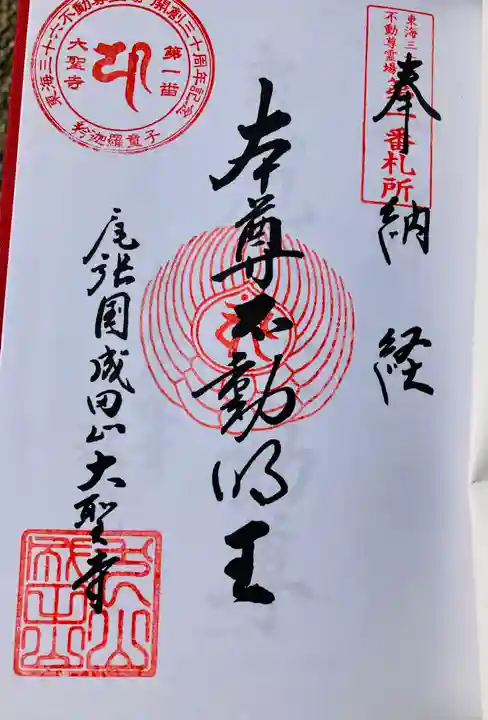 奉納経
東海三
不動尊霊場
番札所
本尊不動明王
東海三十六不動尊霊場開創三十周年記念
第一番
大聖寺
矜迦羅童子
尾張國成田山大聖寺